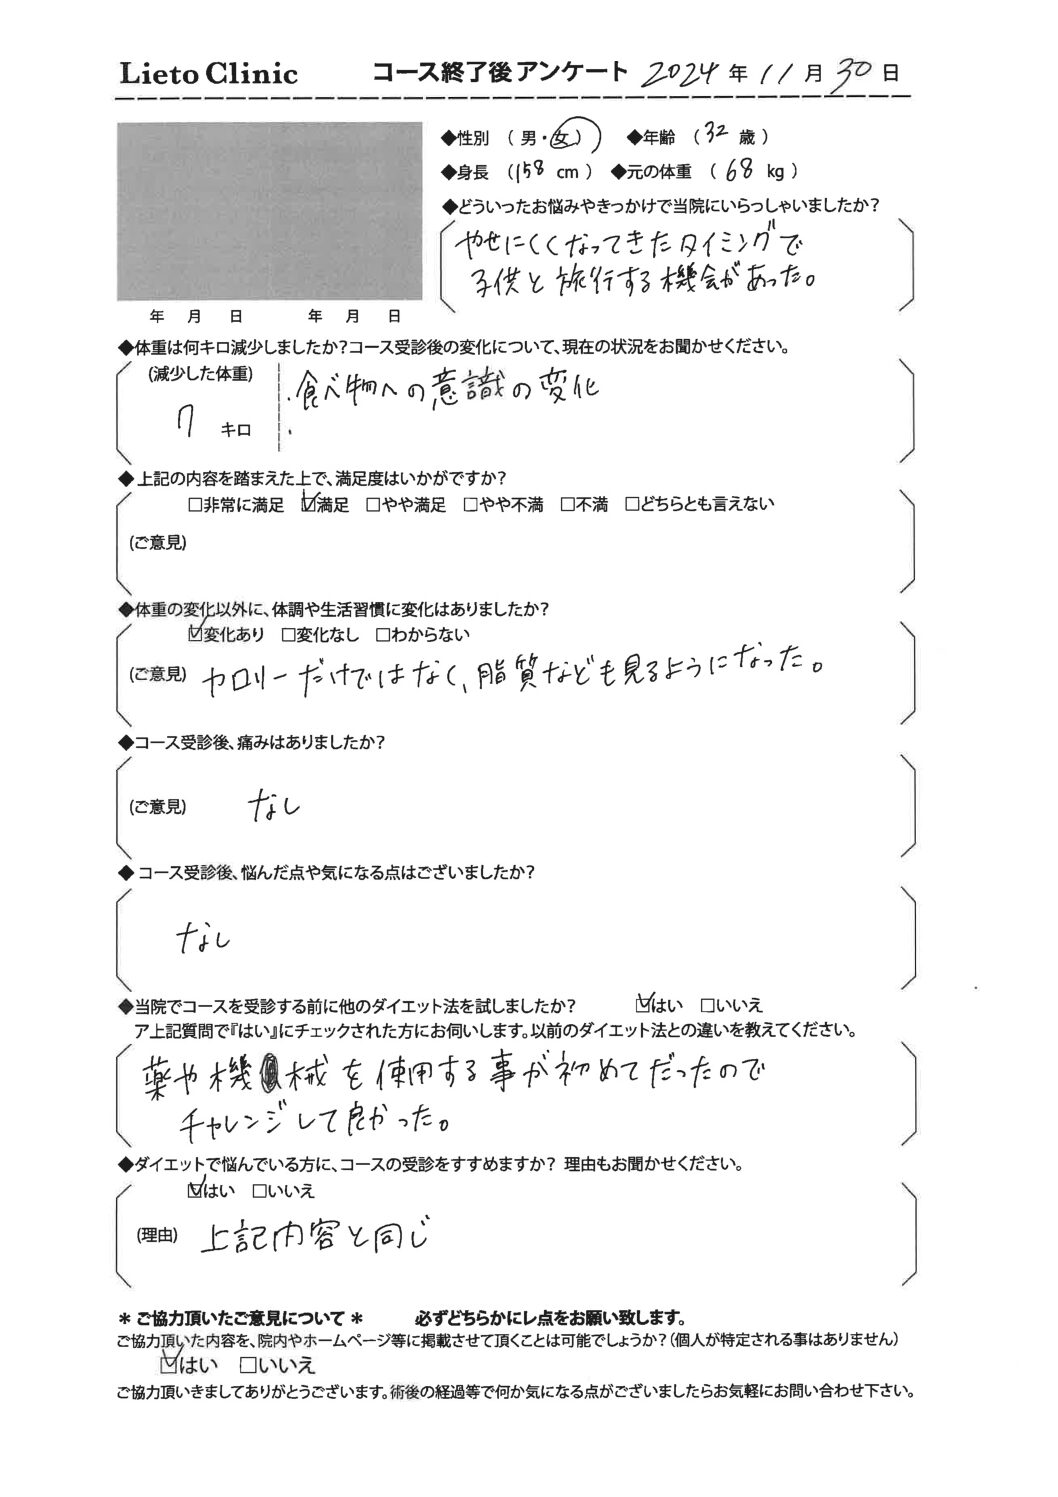 Lieto Clinic コース終了後アンケート 2024年11月30日
◆性別 (男・女) ◆年齢 (32歳)
◆身長 (158 cm) ◆元の体重 (68 kg)
◆どういったお悩みやきっかけで当院にいらっしゃいましたか?
やせにくくなってきたタイミングで
子供と旅行する機会があった。
年 月 日 年 月 日
◆体重は何キロ減少しましたか?コース受診後の変化について、現在の状況をお聞かせください。
(減少した体重) ・食べ物への意識の変化
7 キロ ・
◆上記の内容を踏まえた上で、満足度はいかがですか?
□非常に満足 ☑満足 □やや満足 □やや不満 □不満 □どちらとも言えない
(ご意見)
◆体重の変化以外に、体調や生活習慣に変化はありましたか?
☑変化あり □変化なし □わからない
(ご意見) カロリーだけではなく、脂質なども見るようになった。
◆コース受診後、痛みはありましたか?
(ご意見) なし
◆コース受診後、悩んだ点や気になる点はございましたか?
なし
◆当院でコースを受診する前に他のダイエット法を試しましたか? ☑はい □いいえ
ア上記質問で『はい』にチェックされた方にお伺いします。以前のダイエット法との違いを教えてください。
薬や機械を使用する事が初めてだったので
チャレンジして良かった。
◆ダイエットで悩んでいる方に、コースの受診をすすめますか? 理由もお聞かせください。
☑はい □いいえ
(理由) 上記内容と同じ
＊ご協力頂いたご意見について＊ 必ずどちらかにレ点をお願い致します。
ご協力頂いた内容を、院内やホームページ等に掲載させて頂くことは可能でしょうか?(個人が特定される事はありません)
☑はい □いいえ
ご協力頂きましてありがとうございます。術後の経過等で何か気になる点がございましたらお気軽にお問い合わせ下さい。